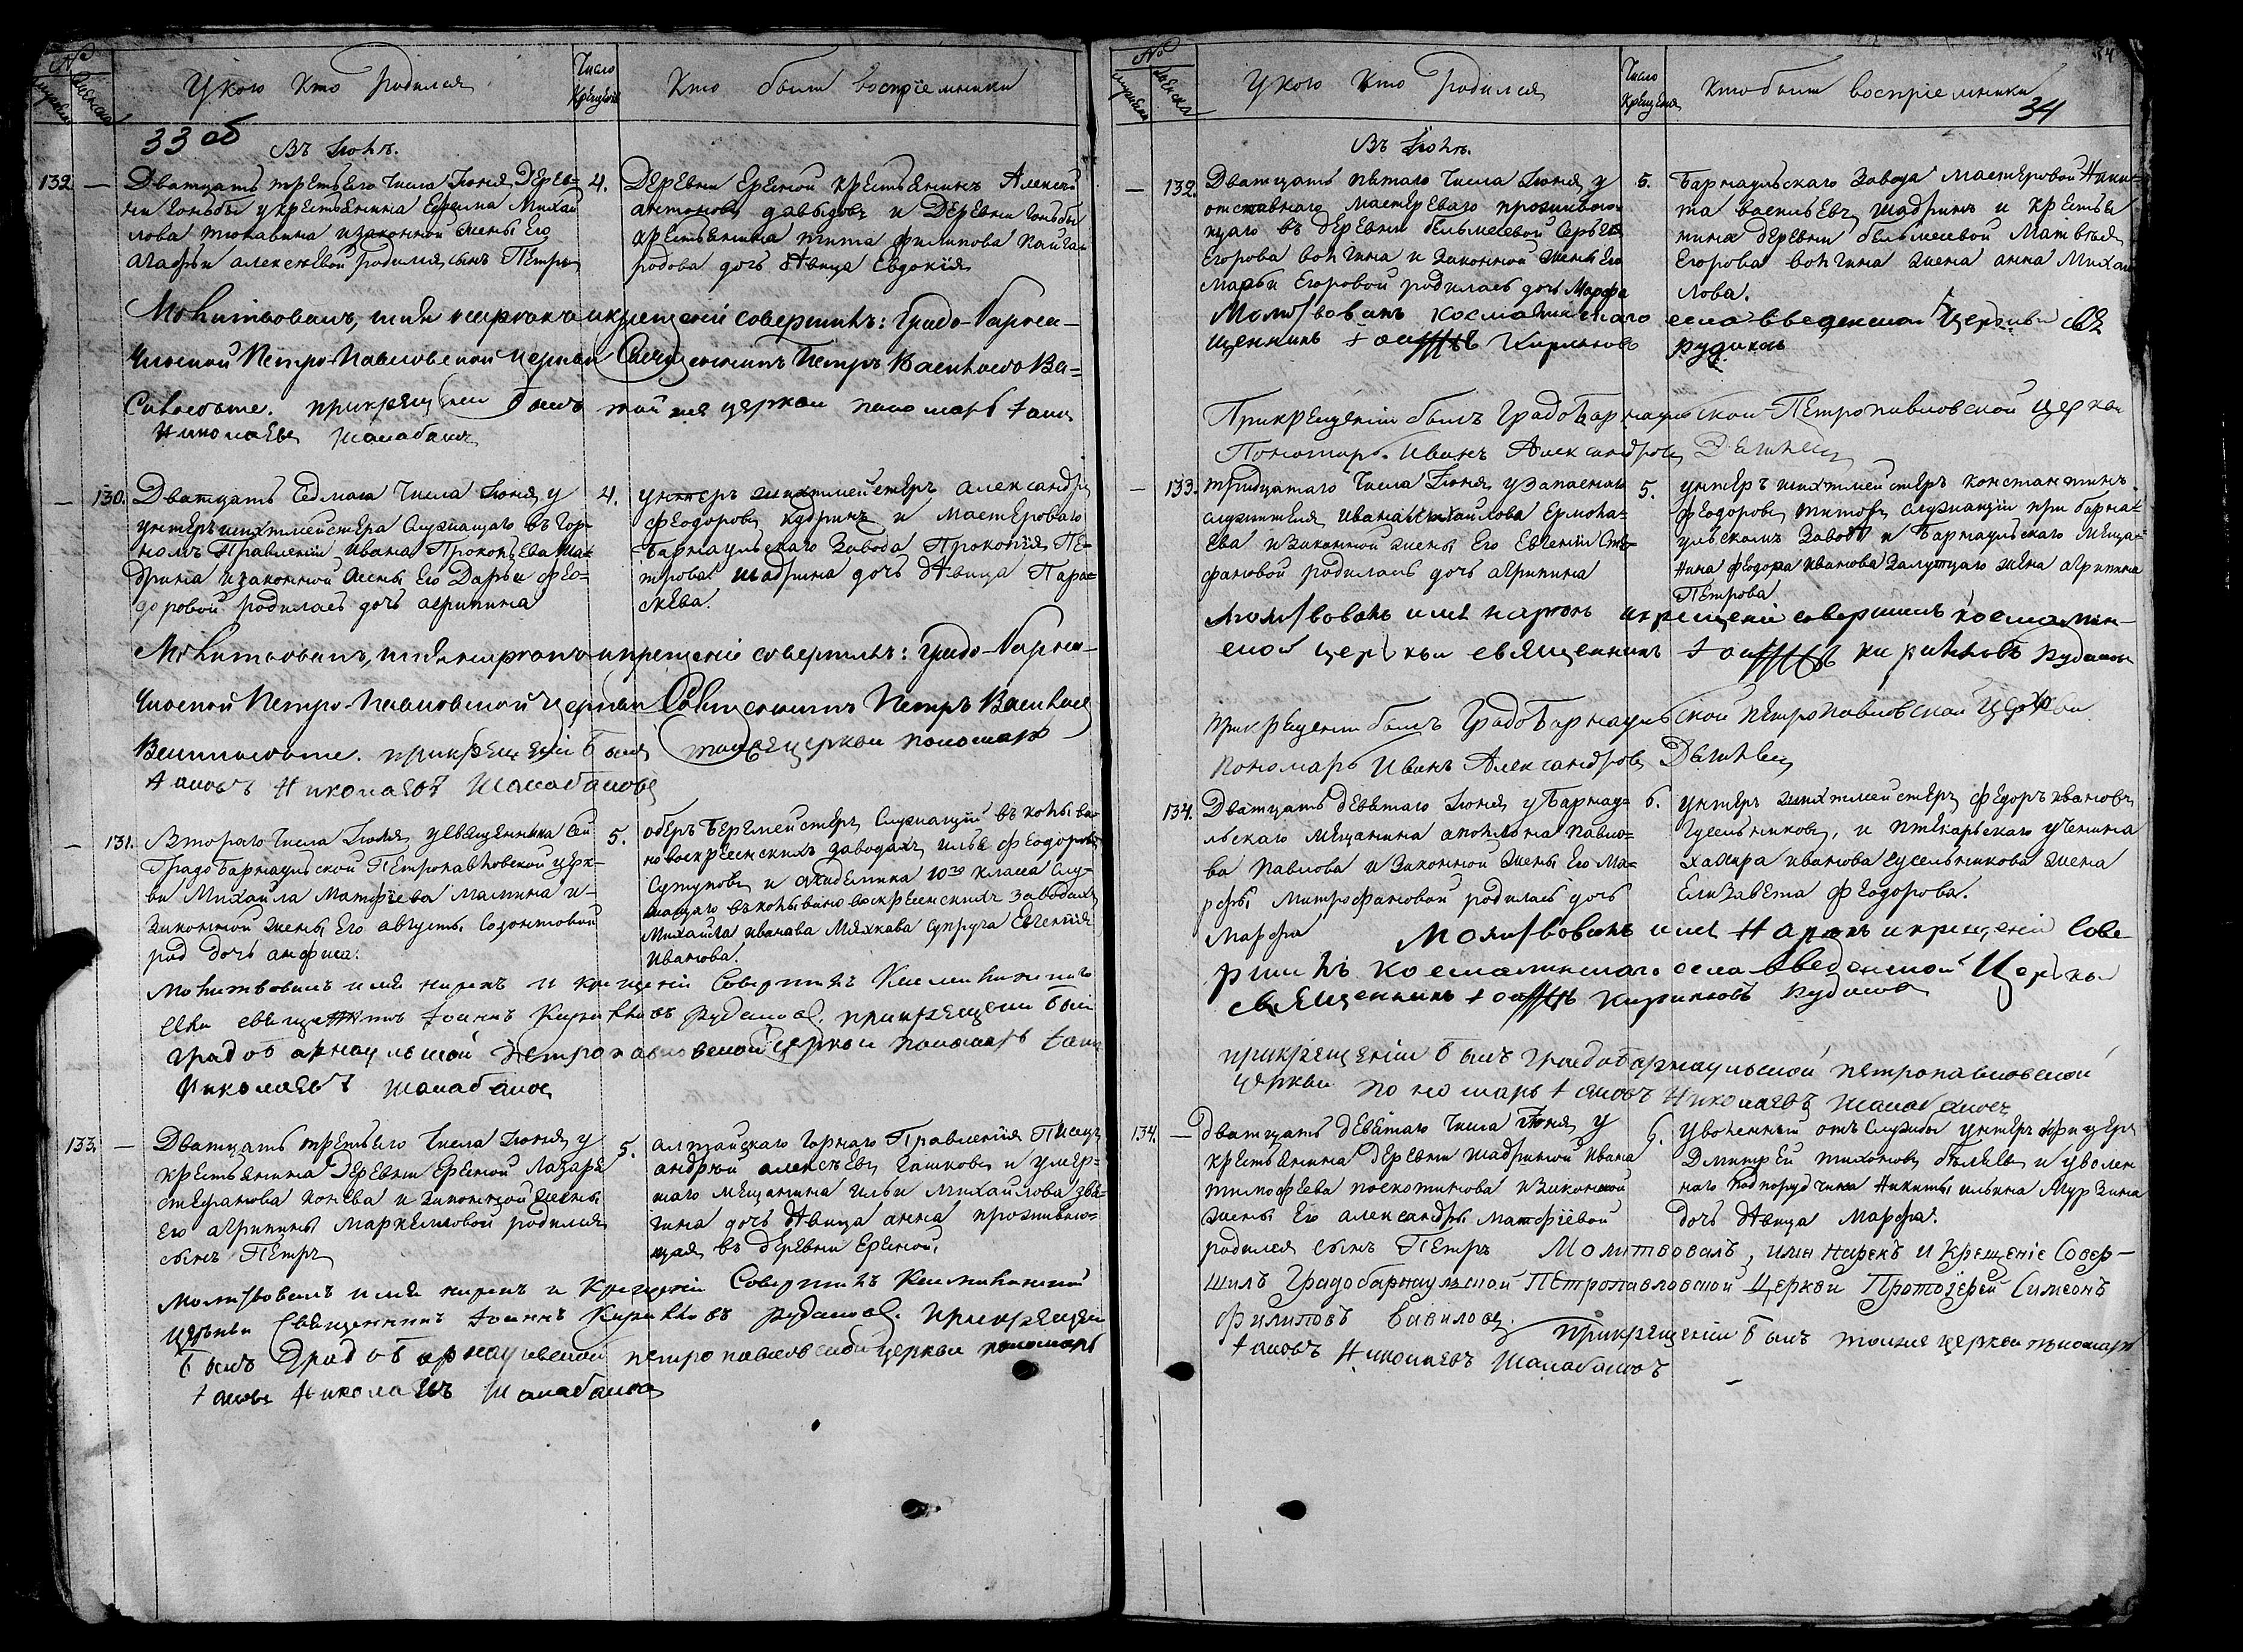 №
мужеска
женска
У кого кто родился
Число
Крещенія
Кто были воспріемники
33 об
Въ Іюлѣ.
132 — Дватцать третьяго Числа Іюня, Дерев-
ни Гоньбы у крестьянина Ефима Михай
лова Тюкавина изаконной жены Его
Агафьи алексѣевой родился сынъ Петръ
4.
Деревни Ересной крестьянинъ Алексѣй
антоновъ давыдовъ и Деревни Гоньбы
крестьянина тита филипова Кайга
родова дочь дѣвица Евдокія
Молитвовалъ, имя нарекъ и крещеніе совершилъ: Градо-Барна-
ульской Петро-Павловской церкви Священникъ Петръ Васильевъ Ва-
прикрещеніи былъ тойже церкви пономарь Іанъ
Николаевъ Шалабановъ
— 130. Дватцать Седмаго Числа Іюня, у
унтеръшихтмейстера Служащаго въ Гор-
номъ Правленіи Ивана Прокопьева Ша-
дрина изаконной жены Его Дарьи Фео-
доровой родилась дочь агрипина
4.
унтеръ шихтмейстеръ александръ
феодоровъ кудринъ и Мастероваго
Барнаульскаго Завода Прокопія Пе-
трова шадрина дочь дѣвица Пара-
скева.
Молитвовалъ, имя нарекъ и крещеніе совершилъ: Градо-Барна-
ульской Петро-Павловской церкви Священникъ Петръ Васильевъ
прикрещеніи былъ тойже церкви пономарь
Іанъ Николаевъ Шалабановъ
— 131. Втораго Числа Іюля, уСвященника Сей
Градо Барнаульской Петропавловской церк-
ви Михаила Матфѣева Малина и-
Законной жены Его августы Созонтовой
род дочь анфиса.
5.
оберъ Бергмейстеръ Служащій въ колывано
воскресенскихъ заводахъ илья феодоровъ
и академика 10го класса Слу-
жащаго въ колывановоскресенскихъ Заводахъ
Михайла иванова Мяхкава Супруга Евгенія
иванова.
Молитвовалъ имя нарекъ и крещеніе Совершилъ Косма
села священникъ Іоаннъ Кириловъ Рудаковъ. прикрещеніи былъ
градобарнаульской петропавловской церкви пономарь Іанъ
Николаевъ Шалабановъ
133. — Дватцать третьяго Числа Іюня, у
крестьянина Деревни Ересной Лазаря
степанова конева и законной жены
Его агрипины маркеловой родился
сынъ Петръ
5.
алтайскаго Горнаго Правленія Писецъ
андрей алексѣевъ Гашковъ и умер-
шаго мещанина ильи Михайлова звя-
гина дочь дѣвица анна проживаю-
щая въ деревни Ересной.
Молитвовалъ имя нарекъ и Крещеніе Совершилъ Космалинской
Церкви Священникъ Іоаннъ Кириловъ Рудаковъ. прикрещеніи
былъ Градобарнаульской петропавловской церкви пономарь
Іанъ Николаевъ Шалабановъ
№
мужеска
женска
У кого кто родился
Число
Крещенія
Кто были воспріемники
34
34
Въ Іюлѣ.
— 132. Дватцать пятаго Числа Іюня, у
отставнаго мастероваго проживаю-
щаго въ деревни бельмесевой Сергея
Егорова волгина и Законной жены Его
марьи Егоровой родилась дочь Марфа
5.
Барнаульскаго Завода мастеровой Ники-
та васильевъ шадринъ и крестья
нина деревни бельмесевой Матвѣя
Егорова волгина жена анна Михай
лова.
Молитвовалъ Космалинскаго села введенской церкви свя
щенникъ Іоаннъ Кириловъ Рудаковъ
Прикрещеніи былъ Градобарнаульской Петропавловской церкви
Пономарь Иванъ Александровъ
— 133. тридцатаго Числа Іюня, узапаснаго
служителя Ивана Михайлова Ермола-
ева изаконной жены Его Евгеніи Сте-
фановой родилась дочь агрипина
5.
унтеръ шихтмейстеръ константинъ
феодоровъ титовъ служащій при барна-
ульскомъ Заводѣ и Барнаульскаго меща-
нина феодора иванова Залутцаго жена агрипина
Петрова
Молитвовалъ имя нарекъ и крещеніе совершилъ космалин-
ской церкви священникъ Іоаннъ Кириловъ Рудаковъ
прикрещеніи былъ Градобарнаульской петропавловской церкви
пономарь Иванъ Александровъ
134. Дватцать девятаго Іюня, уБарнау-
льскаго мещанина аполона Павло-
ва Павлова и Законной жены Его Ма-
рфы Митрофановой родилась дочь
Марфа
6.
унтеръ шихтмейстеръ федоръ ивановъ
Гусельниковъ, и птекарьскаго ученика
захара иванова гусельникова жена
Елизавета феодорова.
Молитвовалъ имя Нарекъ и крещеніе Сове-
ршилъ космалинскаго села введенской Церкви
священникъ Іоаннъ Кириловъ Рудаковъ
прикрещеніи былъ градобарнаульской петропавловской
церкви пономарь Іанъ Николаевъ Шалабановъ
134. — дватцать девятаго Числа Іюня, у
крестьянина деревни шадриной Ивана
тимофеева поскотинова изаконной
жены Его александры матфіевой
родился сынъ Петръ
6.
Уволенный отъ службы унтеръ офицеръ
Дмитрей тихоновъ бѣляевъ и уволен
наго подпоручика Никиты ильина Мурзина
дочь дѣвица Марфа.
Молитвовалъ, имя нарекъ и крещеніе Совер-
шилъ Градобарнаульской Петропавловской Церкви Протоіерей Симеонъ
Филиповъ Вавиловъ. Прикрещеніи былъ тойже церкви пономарь
Іанъ Николаевъ Шалабановъ